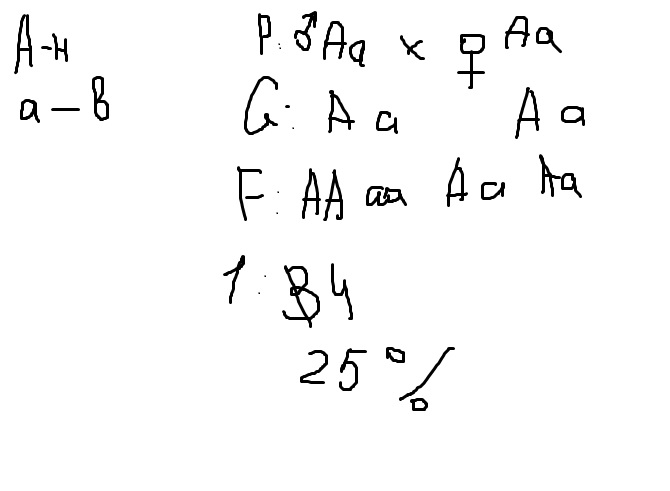 А-н
а – в
P: ♂ Aa × ♀ Aa
G: A a A a
F: AA aa Aa Aa
1: 4
25%